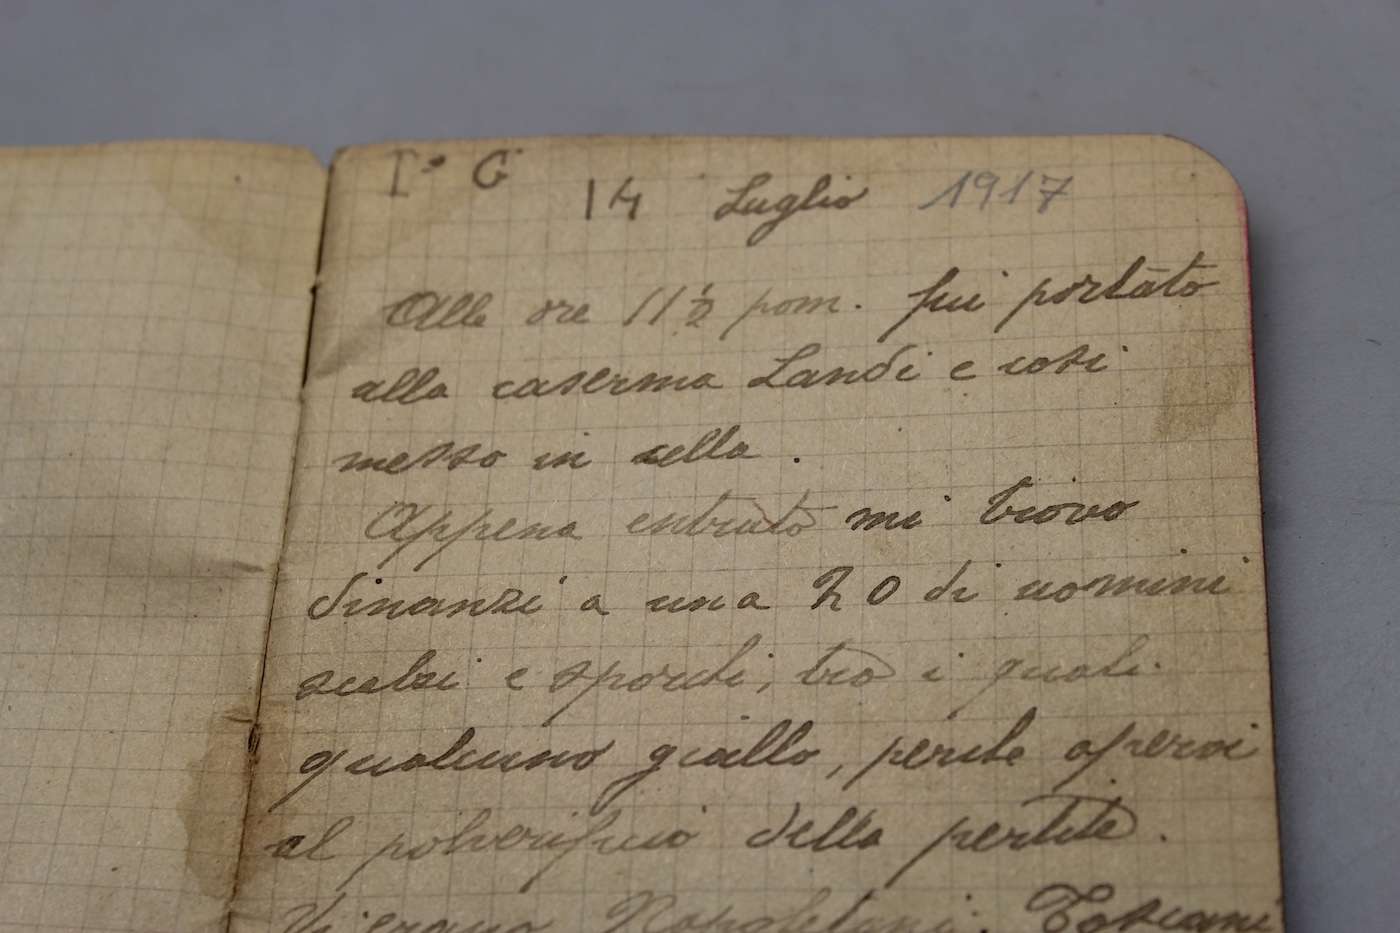 I° G
14 Luglio 1917
Alle ore 11 ½ pom. fui portato
alla caserma Landi e così
messo in cella.
Appena entrato mi trovo
dinanzi a una 20 di uomini
scalzi e sporchi, tra i quali
qualcuno giallo, perche operai
al polverificio della pertite.
Vi erano Napoletani, Toscani